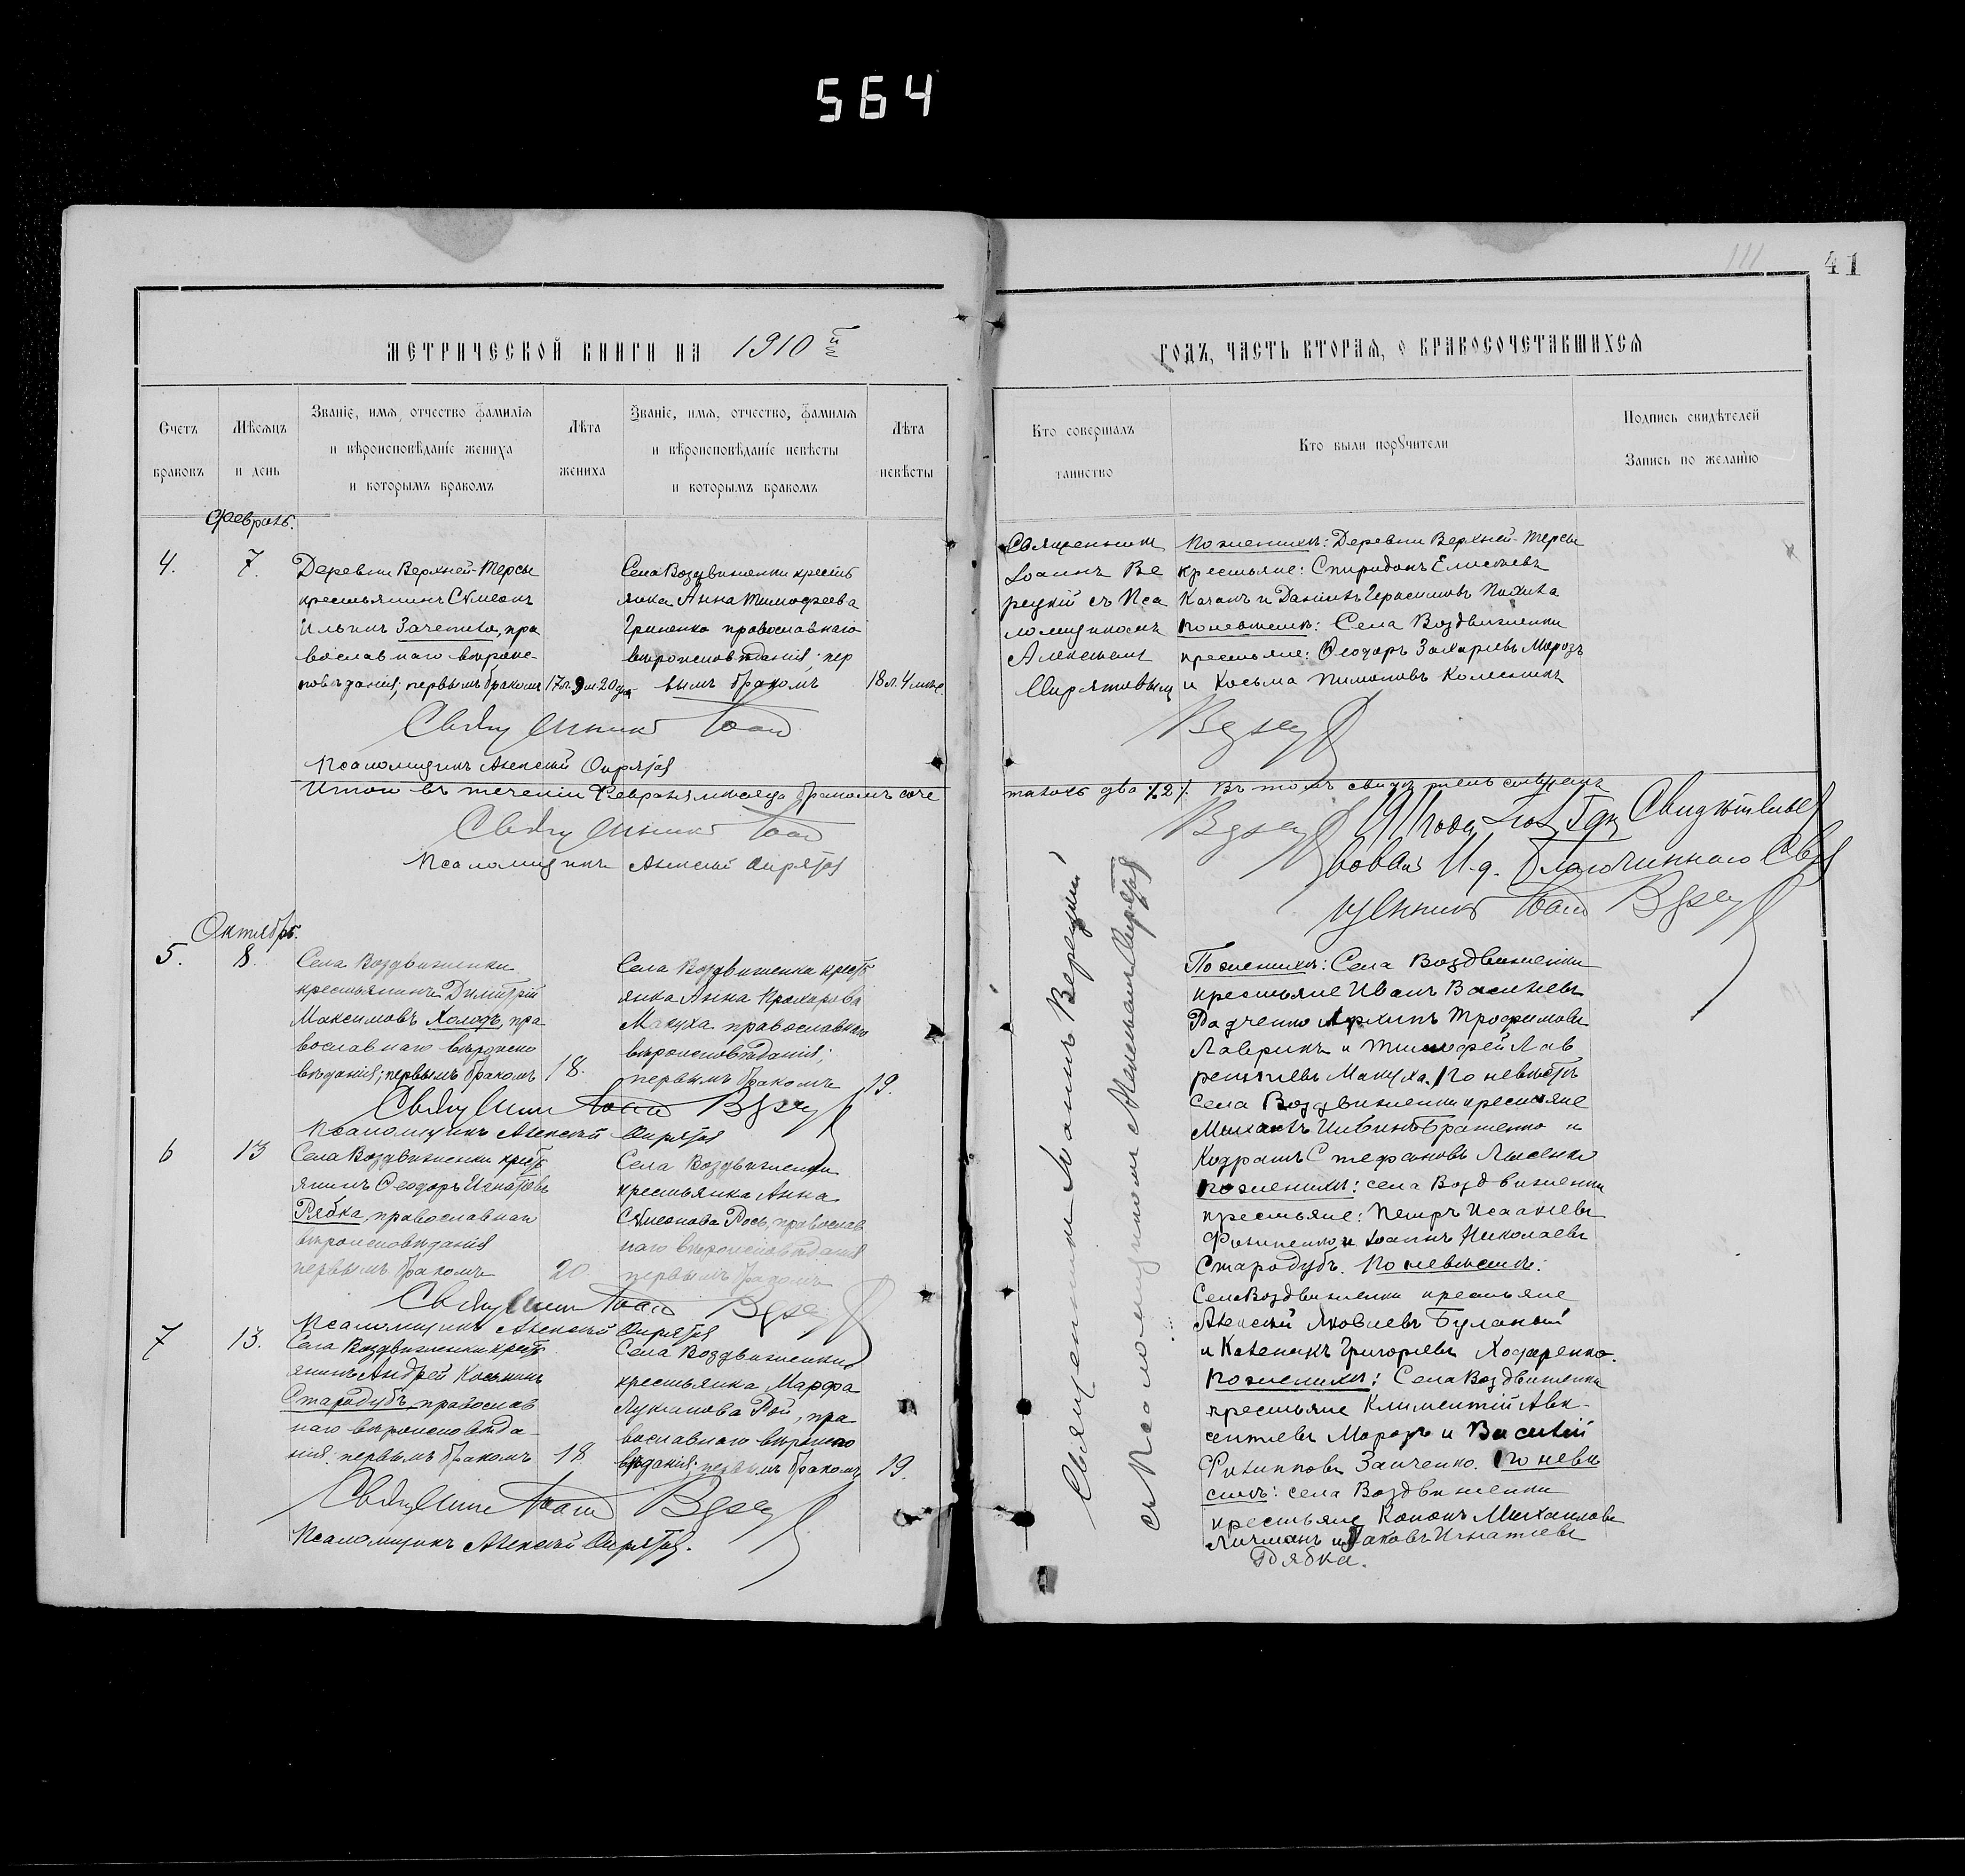 564
111
41
МЕТРИЧЕСКОЙ КНИГИ НА 1910 й
ГОДЪ, ЧАСТЬ ВТОРАЯ, О БРАКОСОЧЕТАВШИХСЯ
Счетъ
браковъ
Мѣсяцъ
и день
Званіе, имя, отчество фамилія
и вѣроисповѣданіе жениха
и которымъ бракомъ
Лѣта
жениха
Званіе, имя, отчество, фамилія
и вѣроисповѣданіе невѣсты
и которымъ бракомъ
Лѣта
невѣсты
Кто совершалъ
таинство
Кто были поручители
Подпись свидѣтелей
Запись по желанію
Февраль.
4.
7.
Деревни Верхней-Терсы
крестьянинъ Сѵмеонъ
Ильинъ Зачепило, пра
вославнаго вѣроис-
повѣданія; первымъ бракомъ
17 л. 9 м. 20 дн
Села Воздвиженки кресть
янка Анна Тимофеева
Гриненко православнаго
вѣроисповѣданія; пер
вымъ бракомъ
18 л. 4 мѣс.
Священникъ
Іоаннъ Ве
рецкій съ Пса
ломщикомъ
Алексѣемъ
Опрятовымъ
По женихѣ: Деревни Верхней-Терсы
крестьяне: Спиридонъ Елисѣевъ
Качанъ и Даніилъ Герасимовъ
По невѣстѣ: Села Воздвиженки
крестьяне: Ѳеодоръ Захаріевъ Морозъ
и Косьма Пимоновъ Колесникъ
Священникъ Іоан
Псаломщикъ Алексѣй Опрятов
Итого въ теченіи Февраля мѣсяца бракомъ соче
талось два /.2./. Въ томъ свидѣтельствуемъ
Священникъ Іоан
Псаломщикъ Алексѣй Опрятов
1911 года Свидѣтельс
вовал И. д. Благочиннаго Свя
щенникъ Іоан
Октябрь.
5.
8.
Села Воздвиженки
крестьянинъ Димитрій
Максимовъ Холодъ, пра
вославнаго вѣроиспо
вѣданія; первымъ бракомъ
18.
Села Воздвиженки кресть
янка Анна Прохорова
Макуха православнаго
вѣроисповѣданія;
первымъ бракомъ
19.
По женихѣ: Села Воздвиженки
крестьяне Иванъ Васильевъ
Радченко Архипъ Трофимовъ
Лаврикъ и Тимофей Лав
рентіевъ Макуха. По невѣстѣ
Села Воздвиженки крестьяне
Михаилъ Братенко и
Кодратъ Стефановъ Лысенко
Священник Іоан
Псаломщикъ Алексѣй Опрятов
6
13
Села Воздвиженки кресть
янинъ Ѳеодоръ Игнатіевъ
Рябка, православнаго
вѣроисповѣданія
первымъ бракомъ
20
Села Воздвиженки
крестьянка Анна
Сѵмеонова Рось, православ
наго вѣроисповѣданія
первымъ бракомъ
По женихѣ: села Воздвиженки
крестьяне: Петръ Исаакіевъ
Филипенко и Іоаннъ Николаевъ
Стародубъ. По невѣстѣ:
Села Воздвиженки крестьяне
Алексѣй Яковлевъ Буланый
и Каленикъ Григорьевъ Ходаренко.
Священник Іоан
Псаломщикъ Алексѣй Опрятов
7
13.
Села Воздвиженки кресть
янинъ Андрей Косьминъ
Стародубъ православ
наго вѣроисповѣда-
нія. первымъ бракомъ
18
Села Воздвиженки
крестьянка Марфа
Лукіанова Рой, пра
вославнаго вѣроиспо
вѣданія; первымъ бракомъ
19.
По женихѣ: Села Воздвиженки
крестьяне Климентій Авк-
сентіевъ Морозъ и Василій
Филипповъ Заиченко. По невѣ
стѣ: села Воздвиженки
крестьяне Кононъ Михаиловъ
Личманъ и Яковъ Игнатіевъ
Рябка.
Священник Іоан
Псаломщикъ Алексѣй Опрятов.
Священникъ Іоаннъ Верецкий
съ Псаломщикомъ Алексѣемъ Опрятов